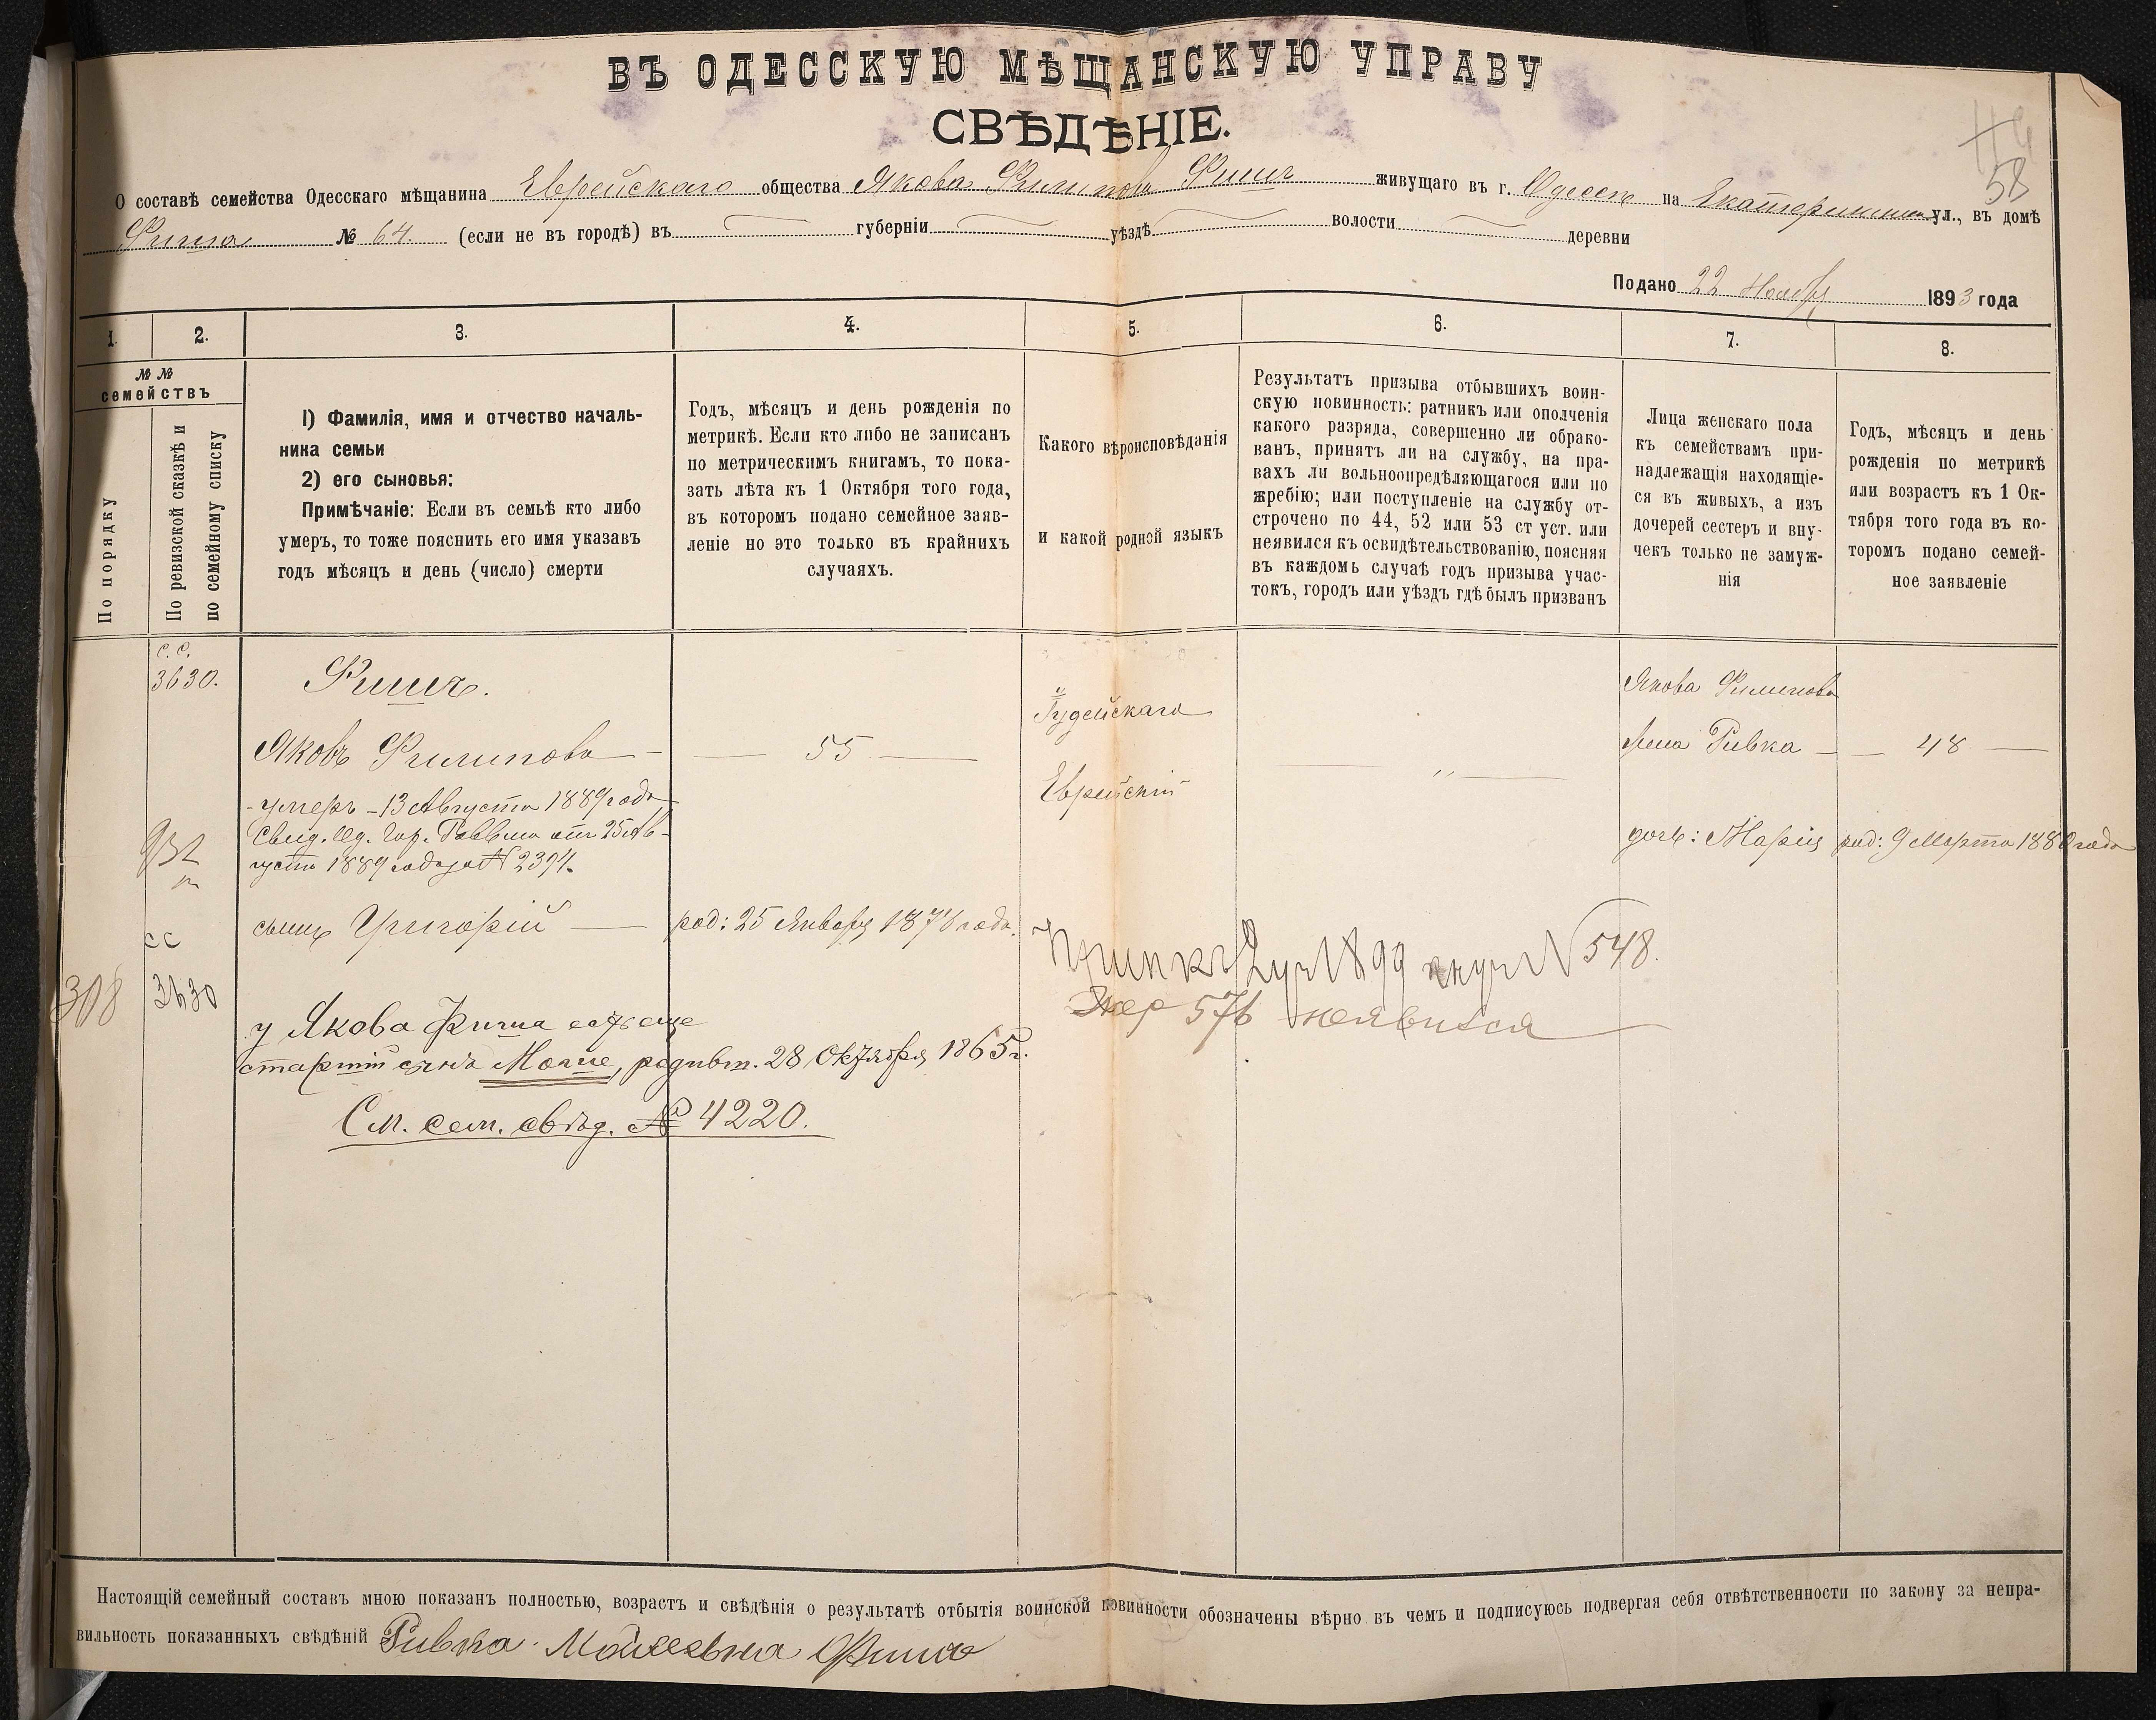 ВЪ ОДЕССКУЮ МѢЩАНСКУЮ УПРАВУ
СВѢДѢНІЕ.
58
О составѣ семейства Одесскаго мѣщанина Еврейскаго общества Якова Филипова Фишъ живущаго въ г. Одессѣ на Екатеринин ул., въ домѣ
Фиша № 64. (если не въ городѣ) въ губерніи уѣздѣ волости деревни
Подано 22 Ноября 1893 года
1. 2. 3. 4. 5. 6. 7. 8.
№ № семействъ
По порядку
По ревизской сказкѣ и
по семейному списку
1) Фамилія, имя и отчество началь-
ника семьи
2) его сыновья:
Примѣчаніе: Если въ семьѣ кто либо
умеръ, то тоже пояснить его имя указавъ
годъ мѣсяцъ и день (число) смерти
Годъ, мѣсяцъ и день рожденія по
метрикѣ. Если кто либо не записанъ
по метрическимъ книгамъ, то пока-
зать лѣта къ 1 Октября того года,
въ которомъ подано семейное заяв-
леніе но это только въ крайнихъ
случаяхъ.
Какого вѣроисповѣданія
и какой родной языкъ
Результатъ призыва отбывшихъ воин-
скую повинность: ратникъ или ополченія
какого разряда, совершенно ли обрако-
ванъ, принятъ ли на службу, на пра-
вахъ ли вольноопредѣляющагося или по
жребію; или поступленіе на службу от-
строчено по 44, 52 или 53 ст уст. или
неявился къ освидѣтельствованію, поясняя
въ каждомъ случаѣ годъ призыва учас-
токъ, городъ или уѣздъ гдѣ былъ призванъ
Лица женскаго пола
къ семействамъ при-
надлежащія находящіе-
ся въ живыхъ, а изъ
дочерей сестеръ и вну-
чекъ только не замуж-
нія
Годъ, мѣсяцъ и день
рожденія по метрикѣ
или возрастъ къ 1 Ок-
тября того года въ ко-
торомъ подано семей-
ное заявленіе
с. с.
3630.
Фишъ.
Яковъ Филиповъ — 55 —
Іудейскаго
Еврейскій
— „ —
Якова Филипова
жена Ривка — 48 —
- умеръ - 13 Августа 1889 года
Свид. Од. Гор. Раввина отъ 25 Ав-
густа 1889 года за № 2394.
дочь: Марія род: 9 Марта 1880 года
сынъ Григорій — род: 25 Января 1878 года.
1899 № 548.
Жер 576 неявился
сс
308 3630
у Якова Фиша есть еще
старшій сынъ Мошме, родивш. 28 Октября 1865 г.
См. сем. свѣд. № 4220.
Настоящій семейный составъ мною показанъ полностью, возрастъ и свѣдѣнія о результатѣ отбытія воинской повинности обозначены вѣрно въ чемъ и подписуюсь подвергая себя отвѣтственности по закону за непра-
вильность показанныхъ свѣдѣній Ривка Моисеевна Фишъ